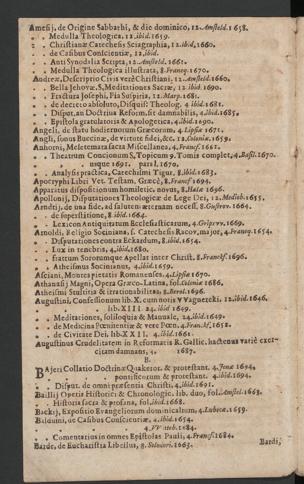 Amesij. de Origine Sabbathi, & die dominico, 12. Amsteld. 1658.
- - Medulla Theologica, 12. ibid. 1659.
- - Christianæ Catechesis Sciagraphia, 12. ibid, 1660.
- - de Casibus Conscientiæ, 12. ibid.
- - Anti Synodalia Scripta, 12. Amsteld. 1661.
- - Medulla Theologica illustrata, 8. Franeq. 1670.
Andreæ, Descriptio Civis verè Christiani, 12. Amsteld. 1660.
- - Bella Jehovæ, S. Meditationes Sacræ, 12. ibid. 1690.
- - Fractura Josephi, Fis Snipuris, 12. Marp. 1681.
- - de decreto absoluto, Disquis: Theolog. 4. ibid. 1681.
- - Disput, an Doctrina Reform. sit damnabilis, 4. ibid. 1685.
- - Epistola gratulatoria & Apologetica, 4. ibid. 1690.
Angeli, de statu hodiernorum Græcorum, 4. Lipsiæ 1671.
Angli, sonus Buccinæ, de virtute fidei, &c. 12. Coloniæ. 1659.
Anhorni, Meletemata sacra Miscellanea, 4. Francof. 1661.
- - Theatrum Concionum S, Topicum 9. Tomis complet, 4. Basil. 1670.
usque 1691. pars I. 1670.
- - Analysis practica, Catechismi Tigur, 8. ibid. 1683.
Apocryphi Libri Vet. Testam, Græcè, 8. Francof 1694.
Apparatus dispositionum homiletic, novus, 8. Halæ 1696.
Apollonij, Disputationes Theologicæ de Lege Dei, 12. Mediob. 1655.
Arndti, de una fide, ad salutem æternam necess, 8. Gustrov. 1664.
- - de superstitione, 8. ibid. 1664.
- - Lexicon Antiquitatum Ecclesiasticarum, 4. Gripsvv. 1669.
Arnoldi, Religio Sociniana, s. Catechesis Racov, major, 4. Franeq. 1654.
- - Disputationes contra Eckardum, 8. ibid, 1654.
- - Lux in tenebris, 4. ibid, 1680.
- - fratrum Sororumque Apellat inter Christ. 8. Franckf. 1696.
- - Atheismus Socinianus, 4. ibid. 1659.
Asciani, Montes pietatis Romanenses, 4. Lipsiæ 1670.
Athanasij Magni, Opera Græco-Latina, fol. Coloniæ 1686.
Atheismi Stultitia & irrationabilitas, 8. Berol. 1696.
Augustini, Confessionum lib. X. cum notis v Vagnerecki. 12. ibid. 1646.
- - - lib. XIII. 24. ibid. 1649.
- - Meditationes, soliloquia & Manuale, 24. ibid. 1649.
- - de Medicina Pœnitentiæ & vere Pœn. 4. Franckf. 1658.
- - de Civitate Dei. lib. XXII. 4. ibid. 1661.
Augustinus Crudelitatem in Reformatis R. Gallic, hactenus vatiè exercitam damnans, 4. 1687.
B.
BAjeri Collatio Doctrinæ Quakeror. & protestant. 4. Jenæ 1694.
- - - pontificiarum & protestant. 4. ibid. 1694.
- - Disput. de omnipræsentia Christi, 4. ibid. 1691.
Baillij Opetis Historici & Chronologic. lib. duo, fol. Amstel. 1663.
- - Historia sacra & profana, fol. ibid. 1668.
Backij, Expositio Evangeliorum dominicalium, 4. Lubecæ. 1659.
Balduini, de Casibus Conscientiæ, 4. ibid. 1654.
- - - 4. VVitteb. 1684.
- - Comentarius in omnes Epistolas Pauli, 4. Francf. 1684.
Barde, de Eucharistia Libellus, 8. 1663.
Bardi,